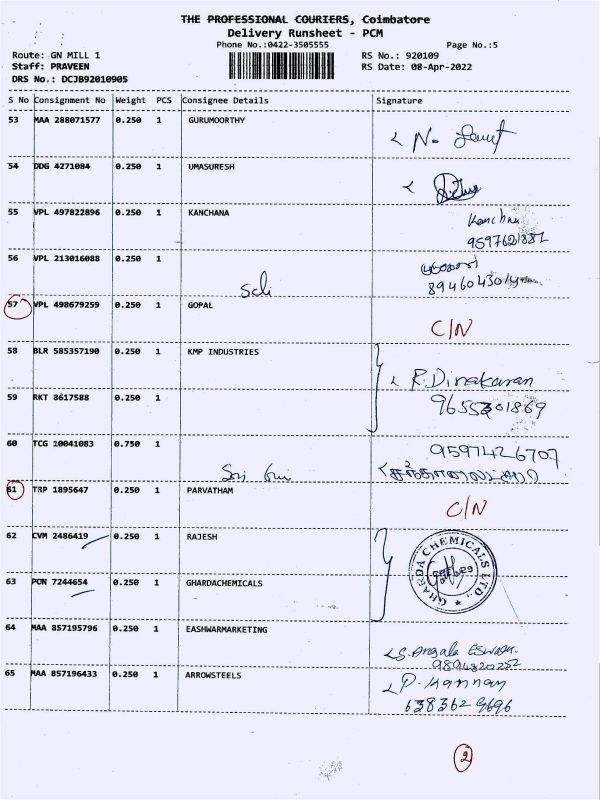 THE PROFESSIONAL COURIERS, Coimbatore
Delivery Runsheet - PCM
Phone No.:0422-3505555 Page No.:5
Route: GN MILL 1 RS No.: 920109
Staff: PRAVEEN RS Date: 08-Apr-2022
DRS No.: DCJB92010905
S No Consignment No Weight PCS Consignee Details Signature
53 MAA 288071577 0.250 1 GURUMOORTHY
54 DDG 4271084 0.250 1 UMASURESH
55 VPL 497822896 0.250 1 KANCHANA Kanchna
56 VPL 213016088 0.250 1
57 VPL 498679259 0.250 1 GOPAL C/N
58 BLR 585357190 0.250 1 KMP INDUSTRIES R. Dinakaran
59 RKT 8617588 0.250 1
9655301869
60 TCG 10041083 0.750 1 9597426707
61 TRP 1895647 0.250 1 PARVATHAM C/N
62 CVM 2486419 0.250 1 RAJESH
GHARDA CHEMICALS LTD.,
63 PON 7244654 0.250 1 GHARDACHEMICALS
64 MAA 857195796 0.250 1 EASHWARMARKETING
65 MAA 857196433 0.250 1 ARROWSTEELS P. Kannan
638362 9696
2